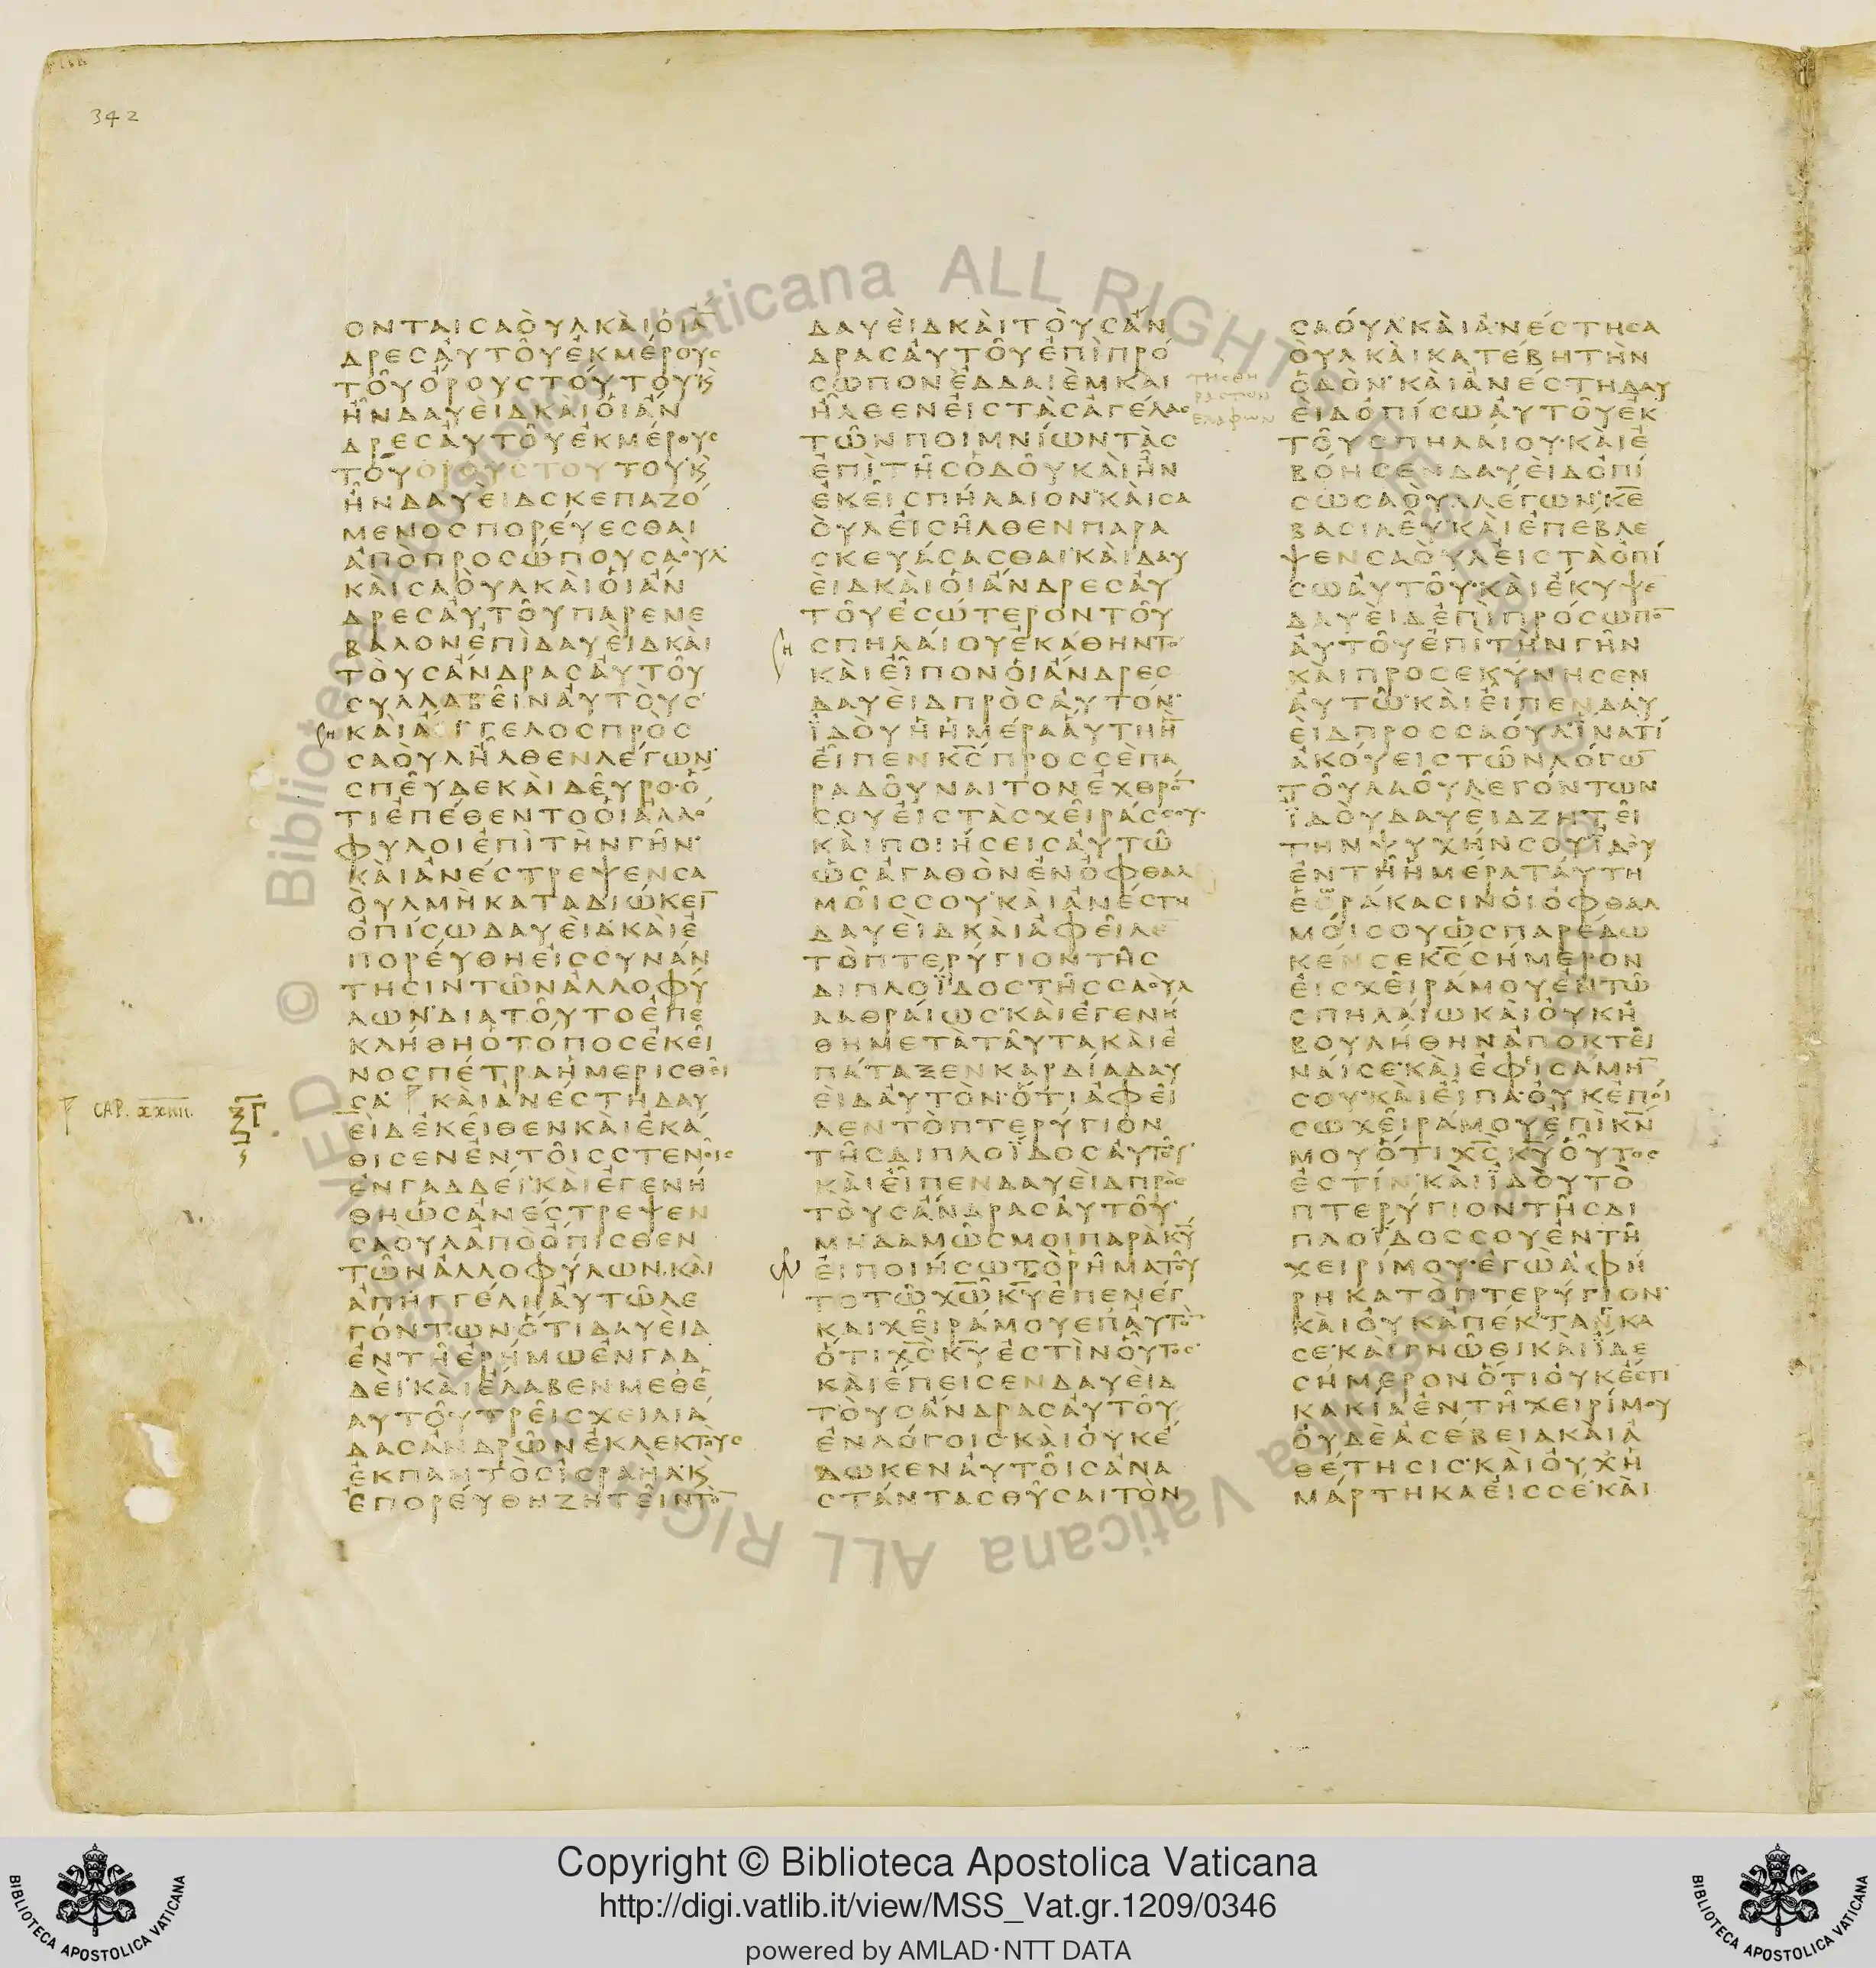 342
ΟΝΤΑΙCΑΟΥΛΚΑΙΟΙΑ̅
ΔΡΕCΑΥΤΟΥΕΚΜΕΡΟΥC
ΤΟΥΟΡΟΥCΤΟΥΤΟΥΚ
ΗΝΔΑΥΕΙΔΚΑΙΟΙΑΝ
ΔΡΕCΑΥΤΟΥΕΚΜΕΡΟΥC
ΤΟΥΟΡΟΥCΤΟΥΤΟΥΚ
ΗΝΔΑΥΕΙΔCΚΕΠΑΖΟ
ΜΕΝΟCΠΟΡΕΥΕCΘΑΙ
ΑΠΟΠΡΟCΩΠΟΥCΑΟΥΛ
ΚΑΙCΑΟΥΛΚΑΙΟΙΑΝ
ΔΡΕCΑΥΤΟΥΠΑΡΕΝΕ
ΒΑΛΟΝΕΠΙΔΑΥΕΙΔΚΑΙ
ΤΟΥCΑΝΔΡΑCΑΥΤΟΥ
CΥΛΛΑΒΕΙΝΑΥΤΟΥC
ΚΑΙΑΓΓΕΛΟCΠΡΟC
CΑΟΥΛΗΛΘΕΝΛΕΓΩΝ
CΠΕΥΔΕΚΑΙΔΕΥΡΟΟ
ΤΙΕΠΕΘΕΝΤΟΟΙΑΛΛΟ
ΦΥΛΟΙΕΠΙΤΗΝΓΗΝ
ΚΑΙΑΝΕCΤΡΕΨΕΝCΑ
ΟΥΛΜΗΚΑΤΑΔΙΩΚΕΙ̅
ΟΠΙCΩΔΑΥΕΙΔΚΑΙΕ
ΠΟΡΕΥΘΗΕΙCCΥΝΑΝ
ΤΗCΙΝΤΩΝΑΛΛΟΦΥ
ΛΩΝΔΙΑΤΟΥΤΟΕΠΕ
ΚΛΗΘΗΟΤΟΠΟCΕΚΕΙ
ΝΟCΠΕΤΡΑΗΜΕΡΙCΘΕΙ
CΑ ΚΑΙΑΝΕCΤΗΔΑΥ
CAP. xxiiii.
ΕΙΔΕΚΕΙΘΕΝΚΑΙΕΚΑ
ΘΙCΕΝΕΝΤΟΙCCΤΕΝΟΙC
ΕΝΓΑΔΔΕΙΚΑΙΕΓΕΝΗ
ΘΗΩCΑΝΕCΤΡΕΨΕΝ
CΑΟΥΛΑΠΟΟΠΙCΘΕΝ
ΤΩΝΑΛΛΟΦΥΛΩΝΚΑΙ
ΑΠΗΓΓΕΛΗΑΥΤΩΛΕ
ΓΟΝΤΩΝΟΤΙΔΑΥΕΙΔ
ΕΝΤΗΕΡΗΜΩΕΝΓΑΔ
ΔΕΙΚΑΙΕΛΑΒΕΝΜΕΘΕ
ΑΥΤΟΥΤΡΕΙCΧΕΙΛΙΑ
ΔΑCΑΝΔΡΩΝΕΚΛΕΚΤΟΥC
ΕΚΠΑΝΤΟCΙCΡΑΗΛΚ
ΕΠΟΡΕΥΘΗΖΗΤΕΙΝΤΟ̅
ΔΑΥΕΙΔΚΑΙΤΟΥCΑΝ
ΔΡΑCΑΥΤΟΥΕΠΙΠΡΟ
CΩΠΟΝΕΔΔΑΙΕΜΚΑΙ
ΗΛΘΕΝΕΙCΤΑCΑΓΕΛΑC
ΤΩΝΠΟΙΜΝΙΩΝΤΑC
ΕΠΙΤΗCΟΔΟΥΚΑΙΗΝ
ΕΚΕΙCΠΗΛΑΙΟΝΚΑΙCΑ
ΟΥΛΕΙCΗΛΘΕΝΠΑΡΑ
CΚΕΥΑCΑCΘΑΙΚΑΙΔΑΥ
ΕΙΔΚΑΙΟΙΑΝΔΡΕCΑΥ
ΤΟΥΕCΩΤΕΡΟΝΤΟΥ
CΠΗΛΑΙΟΥΕΚΑΘΗΝΤΟ
ΚΑΙΕΙΠΟΝΟΙΑΝΔΡΕC
ΔΑΥΕΙΔΠΡΟCΑΥΤΟΝ
ΪΔΟΥΗΗΜΕΡΑΑΥΤΗΗ̅
ΕΙΠΕΝΚ̅C̅ΠΡΟCCΕΠΑ
ΡΑΔΟΥΝΑΙΤΟΝΕΧΘΡΟ̅
CΟΥΕΙCΤΑCΧΕΙΡΑCCΟΥ
ΚΑΙΠΟΙΗCΕΙCΑΥΤΩ
ΩCΑΓΑΘΟΝΕΝΟΦΘΑΛ
ΜΟΙCCΟΥΚΑΙΑΝΕCΤΗ
ΔΑΥΕΙΔΚΑΙΑΦΕΙΛΕ
ΤΟΠΤΕΡΥΓΙΟΝΤΗC
ΔΙΠΛΟΪΔΟCΤΗCCΑΟΥΛ
ΛΑΘΡΑΙΩCΚΑΙΕΓΕΝΗ
ΘΗΜΕΤΑΤΑΥΤΑΚΑΙΕ
ΠΑΤΑΞΕΝΚΑΡΔΙΑΔΑΥ
ΕΙΔΑΥΤΟΝΟΤΙΑΦΕΙ
ΛΕΝΤΟΠΤΕΡΥΓΙΟΝ
ΤΗCΔΙΠΛΟΪΔΟCΑΥΤΟΥ
ΚΑΙΕΙΠΕΝΔΑΥΕΙΔΠΡΟC
ΤΟΥCΑΝΔΡΑCΑΥΤΟΥ
ΜΗΔΑΜΩCΜΟΙΠΑΡΑΚ̅Υ̅
ΕΙΠΟΙΗCΩΤΟΡΗΜΑΤΟΥ
ΤΟΤΩΧ̅Ω̅Κ̅Υ̅ΕΠΕΝΕΓ
ΚΑΙΧΕΙΡΑΜΟΥΕΠΑΥΤΟ̅
ΟΤΙΧ̅C̅Κ̅Υ̅ΕCΤΙΝΟΥΤΟC
ΚΑΙΕΠΕΙCΕΝΔΑΥΕΙΔ
ΤΟΥCΑΝΔΡΑCΑΥΤΟΥ
ΕΝΛΟΓΟΙCΚΑΙΟΥΚΕ
ΔΩΚΕΝΑΥΤΟΙCΑΝΑ
CΤΑΝΤΑCΘΥCΑΙΤΟΝ
CΑΟΥΛΚΑΙΑΝΕCΤΗCΑ
ΟΥΛΚΑΙΚΑΤΕΒΗΤΗΝ
ΟΔΟΝΚΑΙΑΝΕCΤΗΔΑΥ
ΕΙΔΟΠΙCΩΑΥΤΟΥΕΚ
ΤΟΥCΠΗΛΑΙΟΥΚΑΙΕ
ΒΟΗCΕΝΔΑΥΕΙΔΟΠΙ
CΩCΑΟΥΛΛΕΓΩΝΚ̅Ε̅
ΒΑCΙΛΕΥΚΑΙΕΠΕΒΛΕ
ΨΕΝCΑΟΥΛΕΙCΤΑΟΠΙ
CΩΑΥΤΟΥΚΑΙΕΚΥΨΕ
ΔΑΥΕΙΔΕΠΙΠΡΟCΩΠΟ̅
ΑΥΤΟΥΕΠΙΤΗΝΓΗΝ
ΚΑΙΠΡΟCΕΚΥΝΗCΕΝ
ΑΥΤΩΚΑΙΕΙΠΕΝΔΑΥ
ΕΙΔΠΡΟCCΑΟΥΛΪΝΑΤΙ
ΑΚΟΥΕΙCΤΩΝΛΟΓΩ̅
ΤΟΥΛΑΟΥΛΕΓΟΝΤΩΝ
ΪΔΟΥΔΑΥΕΙΔΖΗΤΕΙ
ΤΗΝΨΥΧΗΝCΟΥΪΔΟΥ
ΕΝΤΗΗΜΕΡΑΤΑΥΤΗ
ΕΟΡΑΚΑCΙΝΟΙΟΦΘΑΛ
ΜΟΙCΟΥΩCΠΑΡΕΔΩ
ΚΕΝCΕΚ̅C̅CΗΜΕΡΟΝ
ΕΙCΧΕΙΡΑΜΟΥΕΝΤΩ
CΠΗΛΑΙΩΚΑΙΟΥΚΗ
ΒΟΥΛΗΘΗΝΑΠΟΚΤΕΙ
ΝΑΙCΕΚΑΙΕΦΙCΑΜΗ̅
CΟΥΚΑΙΕΙΠΑΟΥΚΕΠΟΙ
CΩΧΕΙΡΑΜΟΥΕΠΙΚ̅Ν̅
ΜΟΥΟΤΙΧ̅C̅Κ̅Υ̅ΟΥΤΟC
ΕCΤΙΝΚΑΙΪΔΟΥΤΟ
ΠΤΕΡΥΓΙΟΝΤΗCΔΙ
ΠΛΟΪΔΟCCΟΥΕΝΤΗ
ΧΕΙΡΙΜΟΥΕΓΩΑΦΗ
ΡΗΚΑΤΟΠΤΕΡΥΓΙΟΝ
ΚΑΙΟΥΚΑΠΕΚΤΑΓΚΑ
CΕΚΑΙΓΝΩΘΙΚΑΙΪΔΕ
CΗΜΕΡΟΝΟΤΙΟΥΚΕCΤΙ
ΚΑΚΙΑΕΝΤΗΧΕΙΡΙΜΟΥ
ΟΥΔΕΑCΕΒΕΙΑΚΑΙΑ
ΘΕΤΗCΙCΚΑΙΟΥΧΗ
ΜΑΡΤΗΚΑΕΙCCΕΚΑΙ
Copyright © Biblioteca Apostolica Vaticana
http://digi.vatlib.it/view/MSS_Vat.gr.1209/0346
powered by AMLAD·NTT DATA
BIBLIOTECA APOSTOLICA VATICANA
BIBLIOTECA APOSTOLICA VATICANA